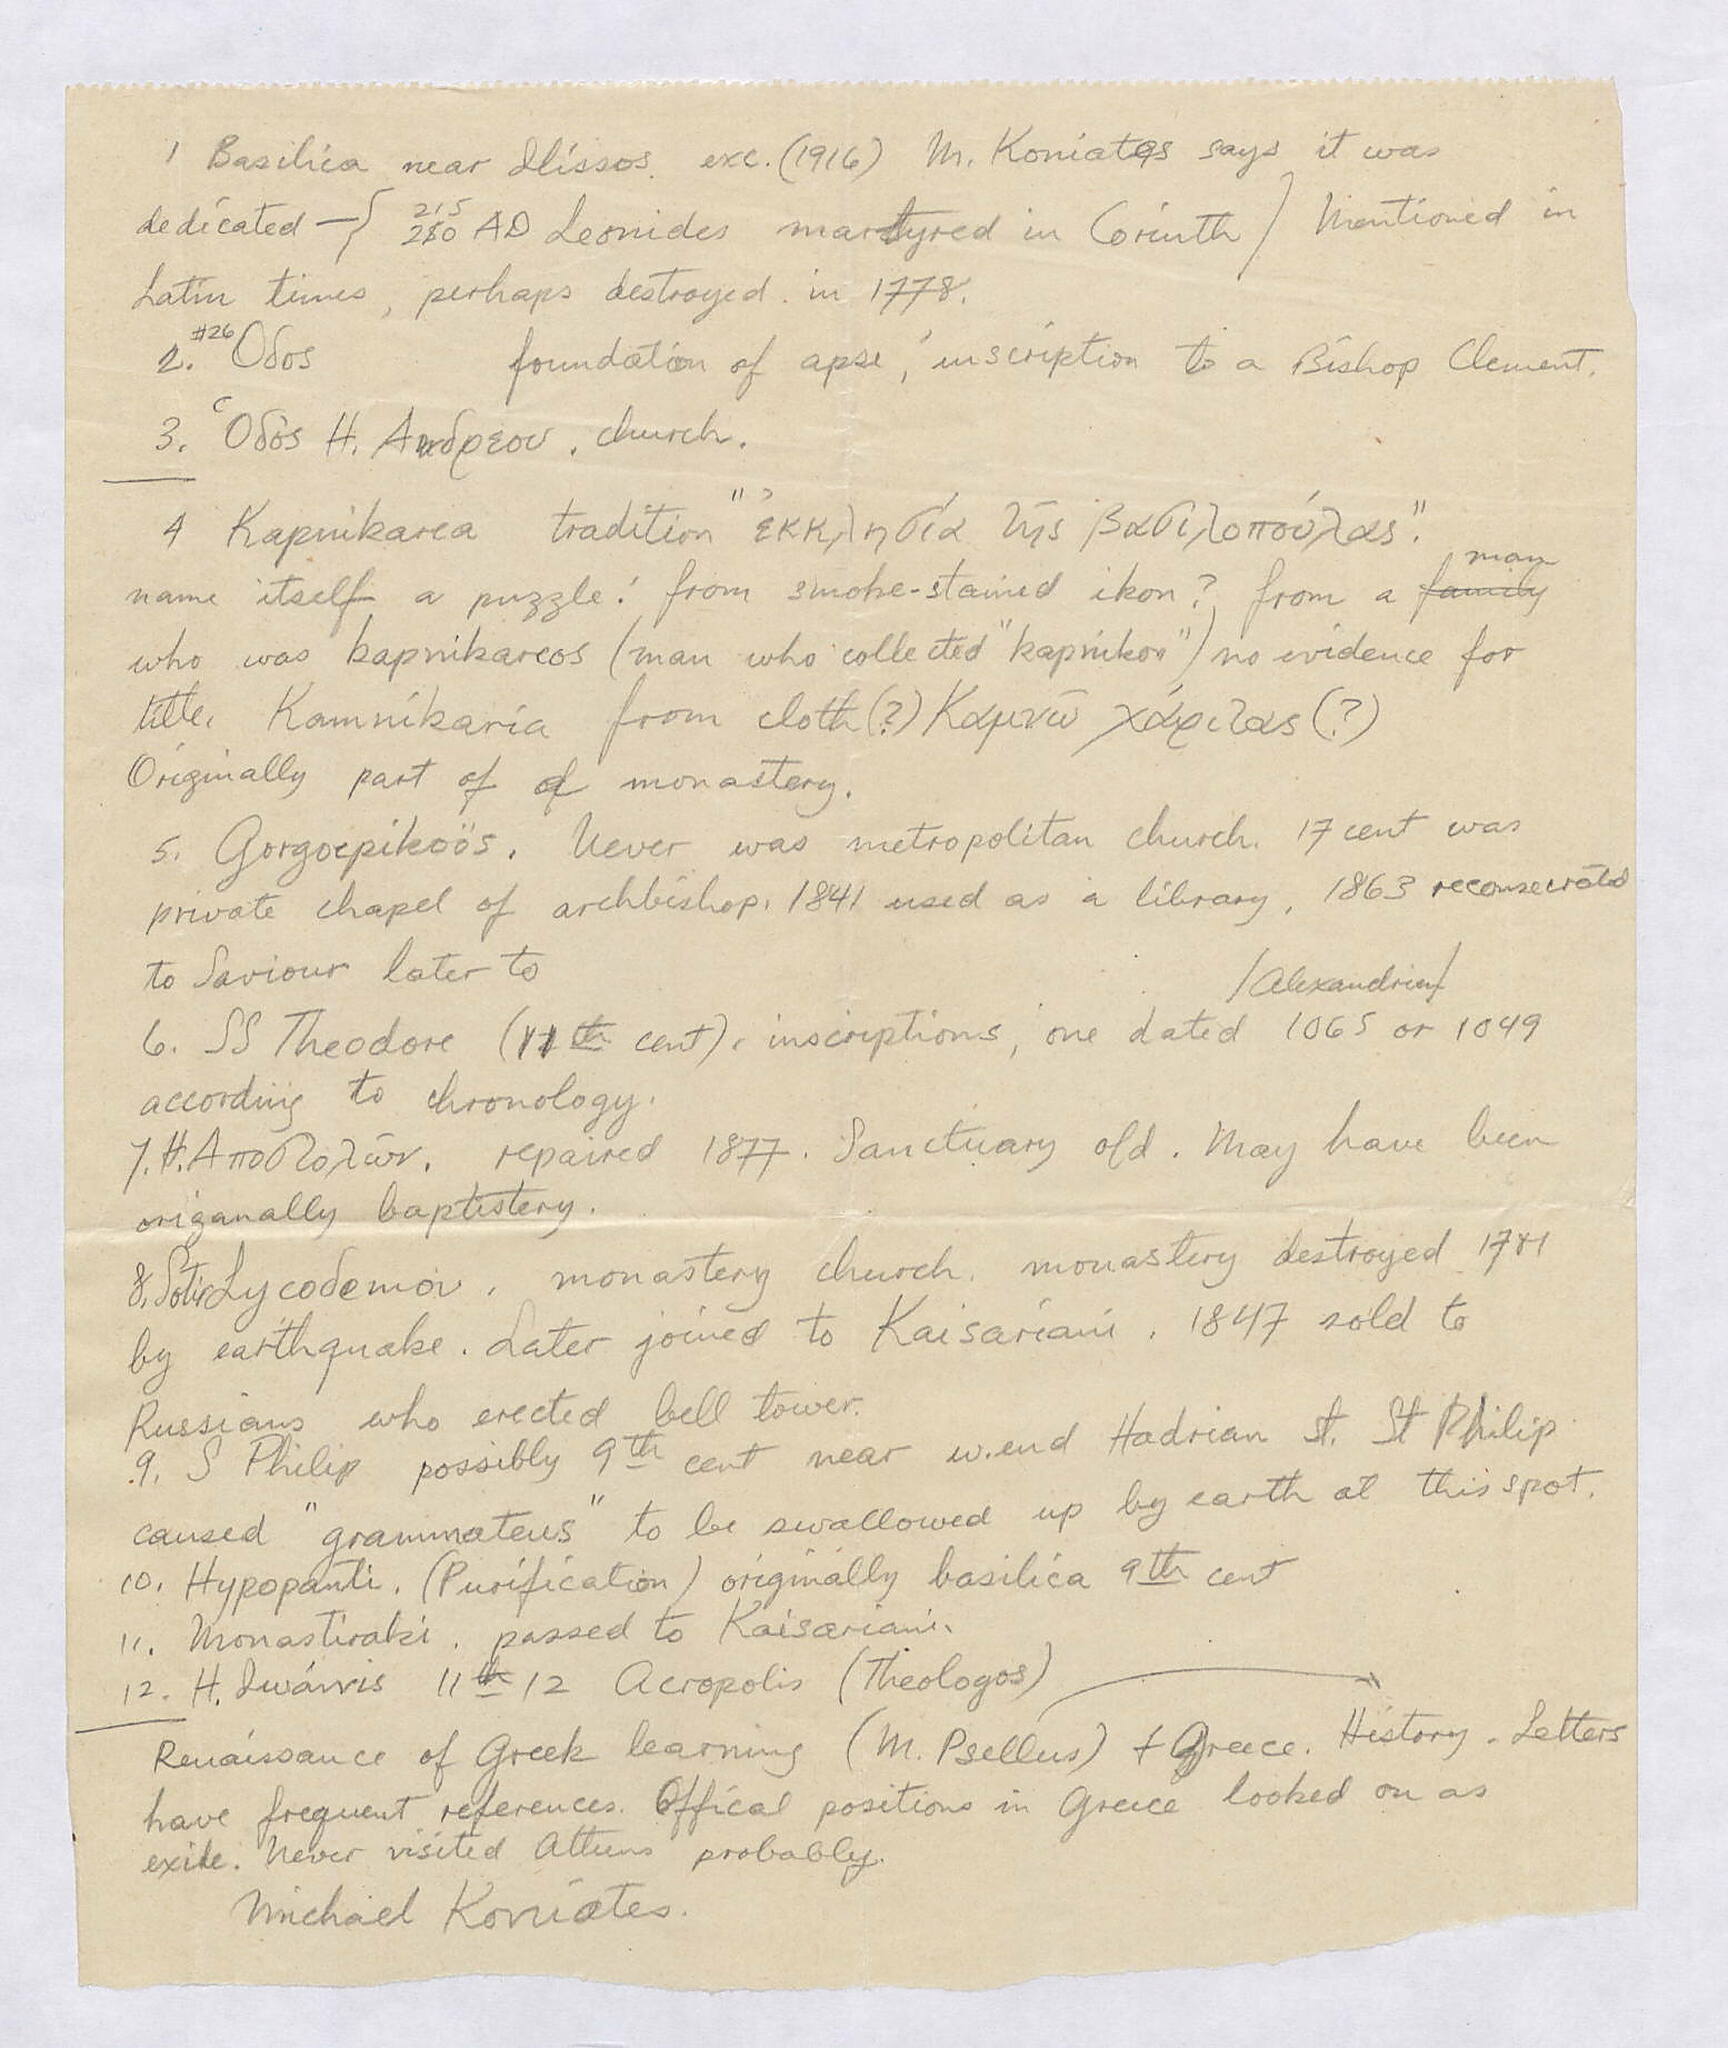 1 Basilica near Ilissos. exc. (1916) M. Koniates says it was
dedicated — { 215
250 AD Leonides martyred in Corinth } Mentioned in
Latin times, perhaps destroyed in 1778.
2. #26 Οδος foundation of apse, inscription to a Bishop Clement.
3. Ὁδὸς Η. Ανδρεου. church.
4 Kapnikarea tradition "ἐκκλησία τῆς βασιλοπούλας".
man
name itself a puzzle: from smoke-stained ikon? from a family
who was kapnikareos (man who collected "kapnikon") no evidence for
title. Kamnikaria from cloth(?) Καμνῶ χάριτας (?)
Originally part of a monastery.
5. Gorgoepikoös. Never was metropolitan church. 17 cent was
private chapel of archbishop. 1841 used as a library, 1863 reconsecrated
to Saviour later to
/Alexandrian/
6. SS Theodore (11th cent), inscriptions, one dated 1065 or 1049
according to chronology.
7. Η. Αποστολῶν. repaired 1877. Sanctuary old. May have been
origanally baptistery.
8. Sotir Lycodemou, monastery church. monastery destroyed 1781
by earthquake. Later joined to Kaisariani. 1847 sold to
Russians who erected bell tower.
9. S Philip possibly 9th cent near w.end Hadrian St. St Philip
caused "grammateus" to be swallowed up by earth at this spot.
10. Hypopanti. (Purification) originally basilica 9th cent
11. Monastiraki. passed to Kaisariani.
12. H. Iwánnis 11th 12 Acropolis (Theologos)
Renaissance of Greek learning (M. Psellus) + Greece. History. Letters
have frequent references. Offical positions in Greece looked on as
exile. Never visited Athens probably.
Michael Koniates.